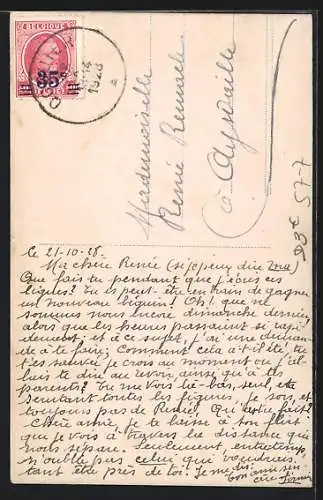 BELGIQUE
35c
1928
Mademoiselle
Renée
à
93€ 57-7
le 21-10-28.
Ma chère Renée (si je peux dire ma)
Que fais tu pendant que j'écris ces
lignes? Tu es peut-être en train de gagner
un nouveau béguin! Oh! que ne
sommes nous encore dimanche dernier
alors que les heures passaient si rapi-
dement, et à ce sujet, j'ai une deman-
de à te faire; Comment cela a-t-il été, tu
t'es sauvée je crois au moment où j'al-
lais te dire au revoir, ainsi qu'à tes
parents? Tu me vois là-bas, seul,
toutes les figures, je sors, et
toujours pas de Renée! Qui
Chère amie, je te laisse à ton flirt
que je vois à travers la distance qui
nous sépare. Seulement, entretemps,
n'oublie pas celui qui voudrait
tant être près de toi. Je me dis
ton ami sin-
cère